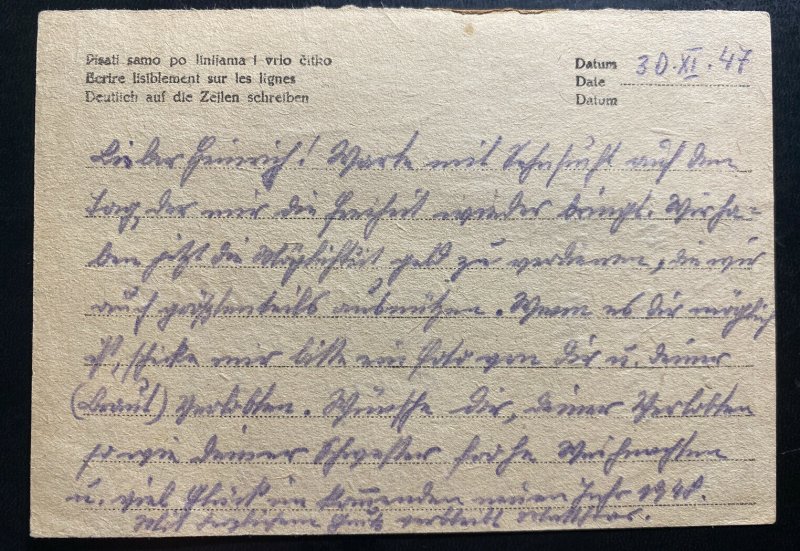 Pisati samo po linijama i vrlo čitko
Ecrire lisiblement sur les lignes
Deutlich auf die Zeilen schreiben
Datum 30.XI.47
Date
Datum
Lieber Heinrich! Warte mit Sehnsucht auf den
Tag, der mir die Freiheit wieder bringt. Wir ha-
ben jetzt die Möglichkeit Geld zu verdienen, die wir
auch größtenteils ausnützen. Wenn es dir möglich
ist, schicke mir bitte ein Foto von dir u. deiner
(Braut) Verlobten. Wünsche dir, deiner Verlobten
sowie deiner Schwester frohe Weihnachten
u. viel Glück im kommenden neuen Jahr 1948.
Mit herzlichem Gruß verbleibt Matthias.